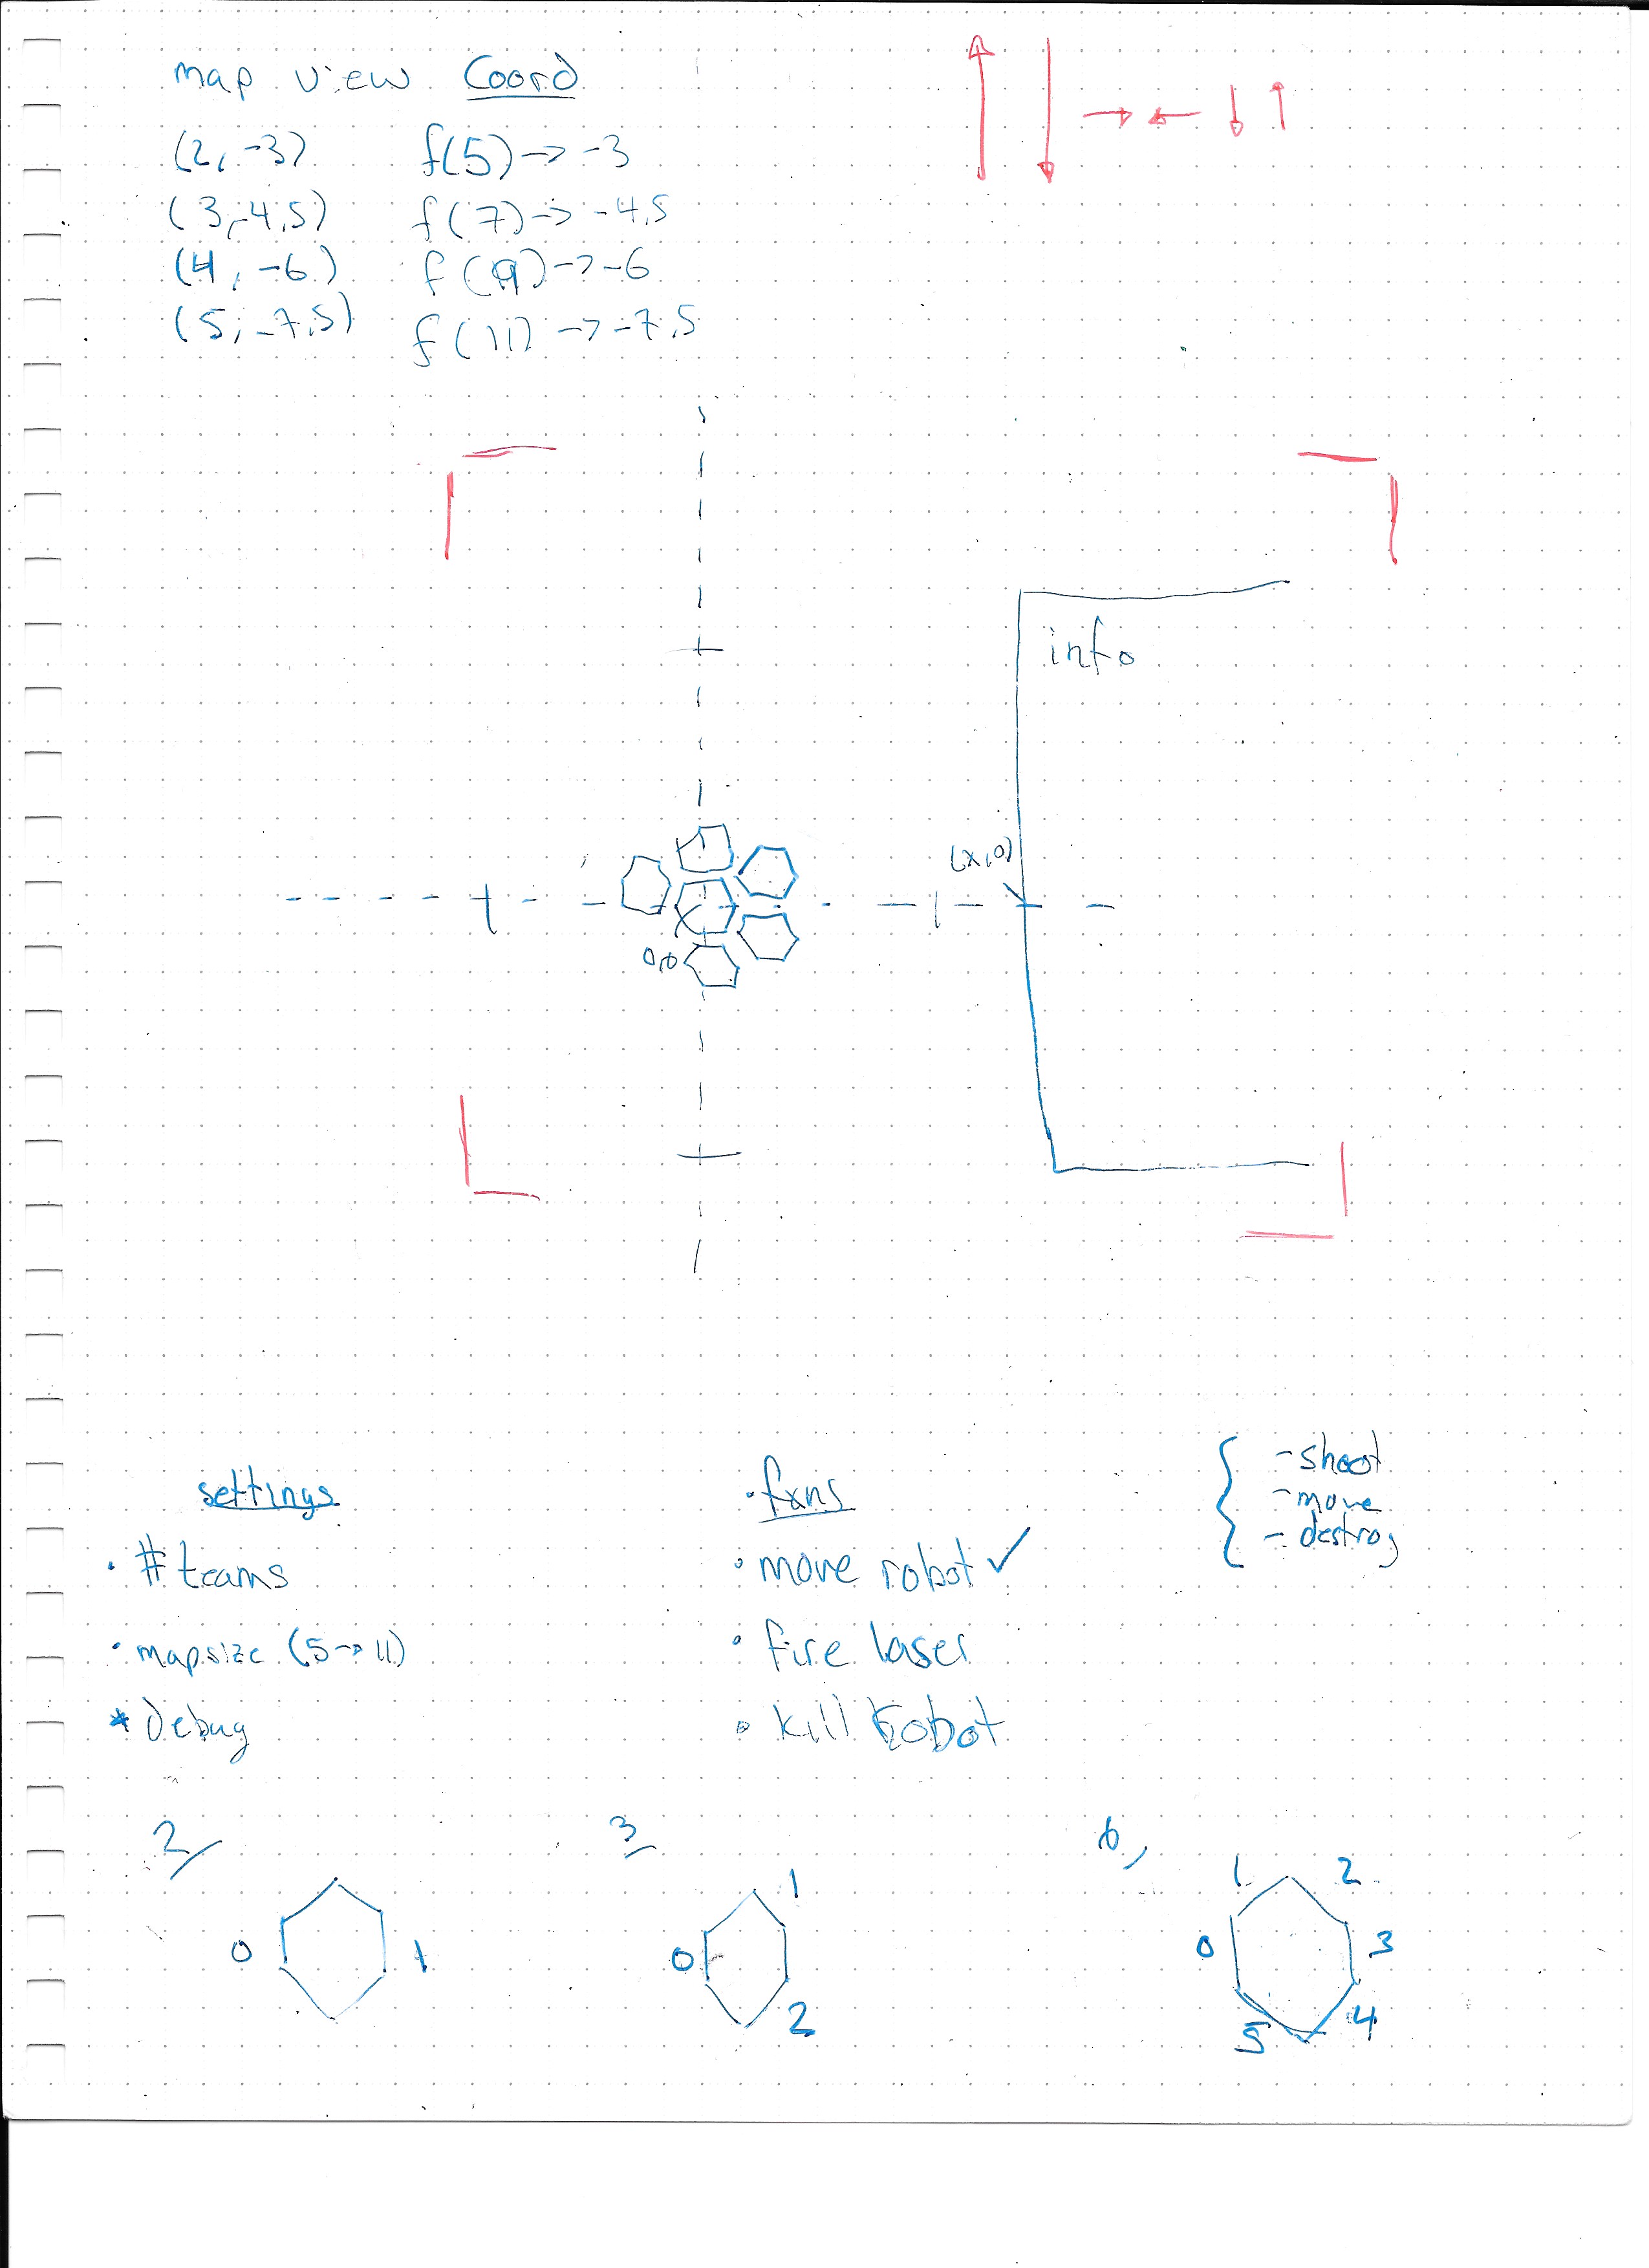 map view Coord
(2, -3) f(5) -> -3
(3, -4,5) f(7) -> -4,5
(4, -6) f(9) -> -6
(5, -7,5) f(11) -> -7,5
info
(x,0)
0,0
settings
• # teams
• mapsize (5->11)
* Debug
• fxns
• move robot ✓
• fire laser
• kill robot
{ - shoot
- move
- destroy
2
0 1
3
0 1 2
6,
0 1 2 3 4 5